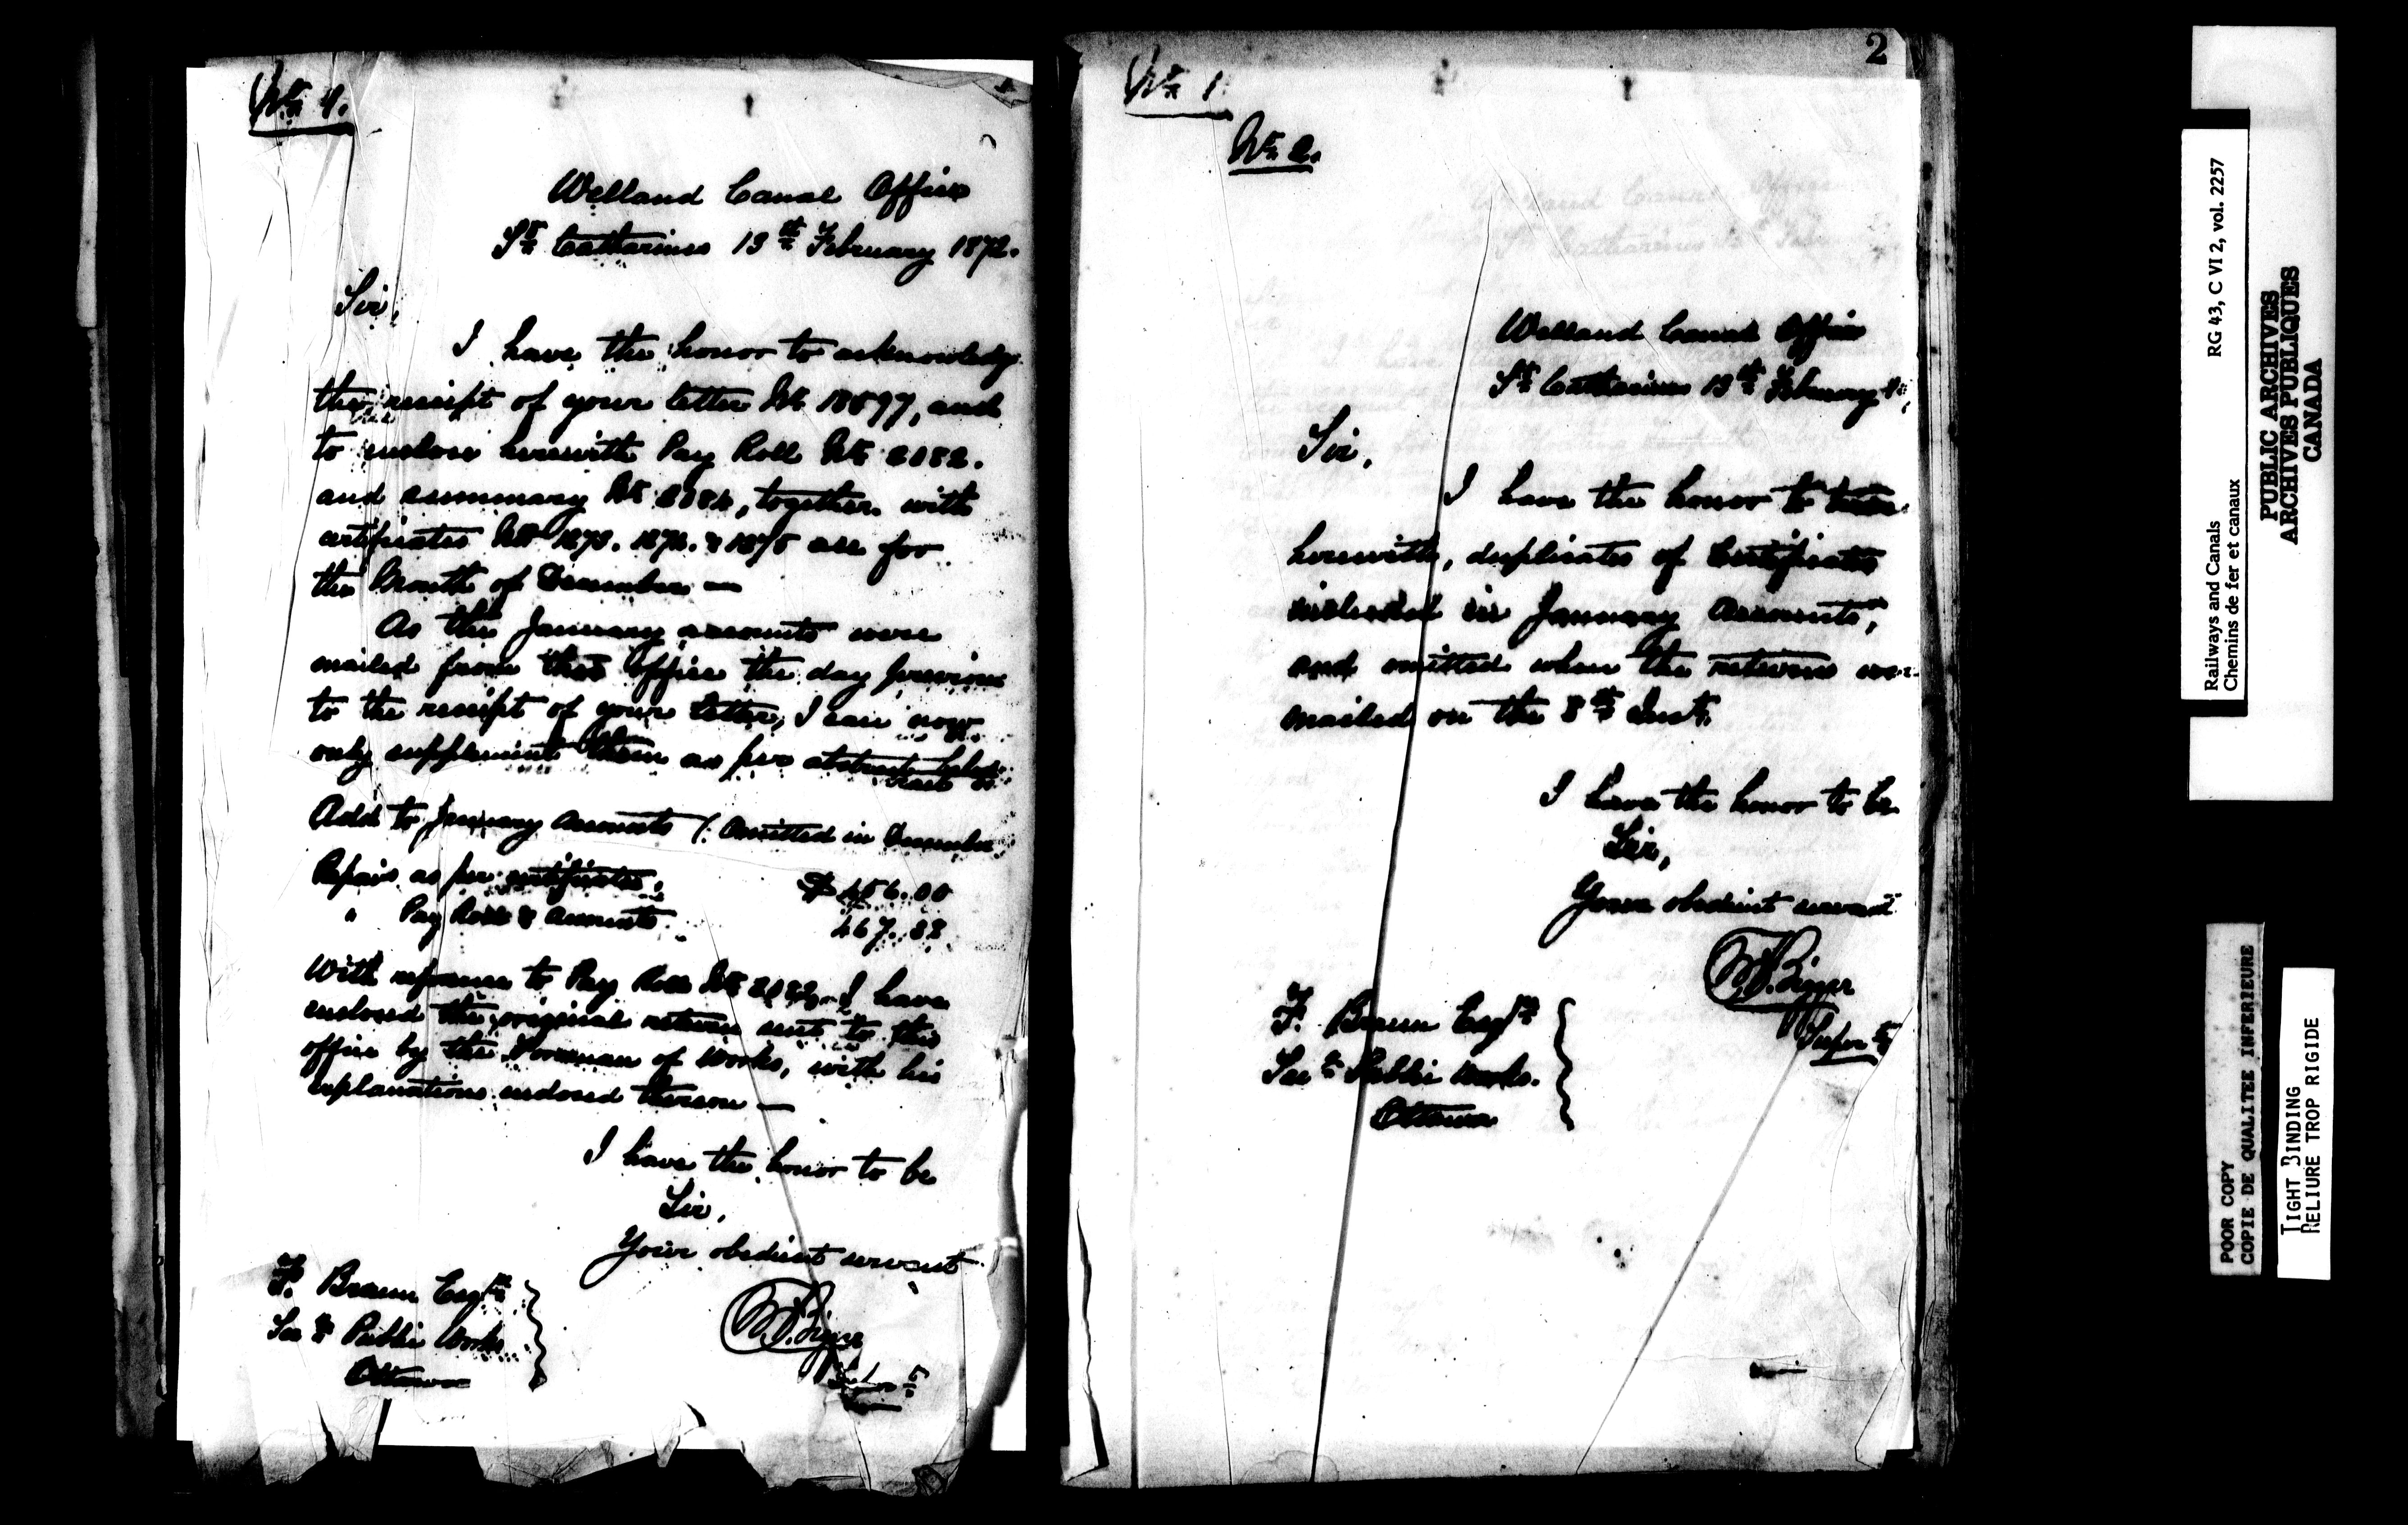 No 1.
Welland Canal Office
St Catharines 13th February 1872.
Sir,
I have the honor to acknowledge
the receipt of your letter No 18597, and
to enclose herewith Pay Roll No 2182.
and summary No 2184, together with
certificates Nos 1873. 1874. & 1875 all for
the Month of December —
As the January accounts were
mailed from this Office the day previous
to the receipt of your letter, I can now
only supplement them as per abstract
Add to January accounts (: Omitted in December
Repairs as per certificates, $ 456.00
" Pay Rolls & Accounts. 467.83
With reference to Pay Roll No 2182, I have
enclosed the original return sent to this
office by the Foreman of Works, with his
explanations endorsed thereon —
I have the honor to be
Sir,
Your obedient servant
F. Braun Esqre
Secy Public Works
Ottawa
Supert
2
No 1.
No 2.
Welland Canal Office
St Catharines 13th February
Sir,
I have the honor to
herewith, duplicates of Certificates
included in January Accounts,
and omitted when the returns
mailed on the 8th Inst.
I have the honor to be
Sir,
Your obedient servant
F. Braun Esqre
Secy Public Works.
Ottawa
Supert
Railways and Canals RG 43, C VI 2, vol. 2257
Chemins de fer et canaux
PUBLIC ARCHIVES
ARCHIVES PUBLIQUES
CANADA
POOR COPY
COPIE DE QUALITEE INFERIEURE
TIGHT BINDING
RELIURE TROP RIGIDE